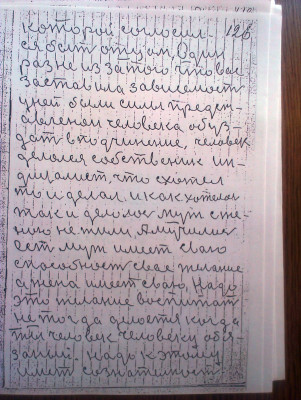 которой соглосил-
ся быть отцом Один
раз не из за того что вас
заставила зависимость
у ней были силы предст-
авлена человека обяз-
дать в подчинение, человек
делался собственник ин-
что схотел
то и делал. и как хотелось
так и делалось муж с же-
ною не жили, А мучились
ест муж имеет свою
способность свае желание
а жена имеет сваю, Надо
это желание воспитат
не тогда делостся когда
тии человек человеку обя-
заный. Надо к этому
имет сознателност
126